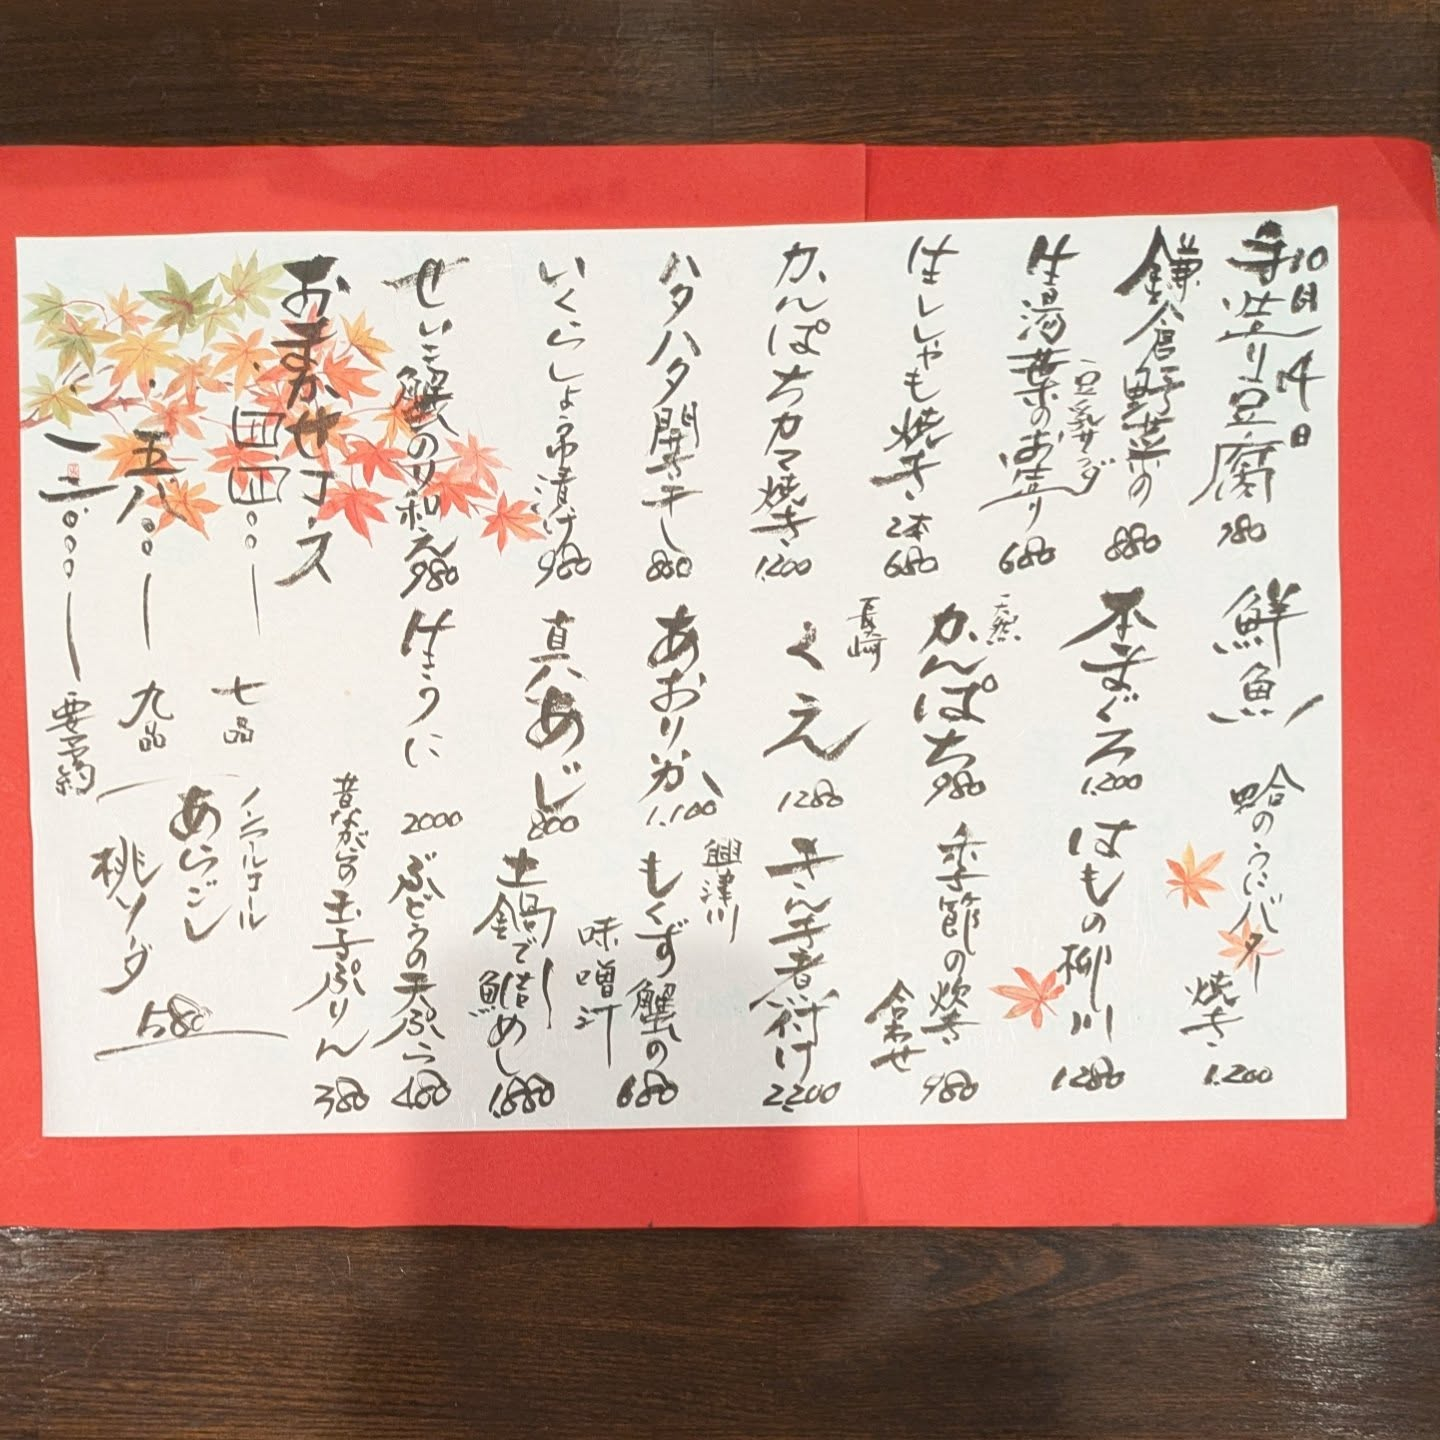 10月14日
手造り豆腐 780
鎌倉野菜の豆乳サラダ 880
生湯葉のお造り 680
生ししゃも焼き 2本 680
かんぱちカマ焼き 1,200
ハタハタ開き干し 880
いくらしょう油漬け 980
せいこ蟹のり和え 980
おまかせコース
四四〇〇ー 七品
五八〇〇ー 九品
一二〇〇〇ー 要予約
鮮魚
本まぐろ 1,200
天然 かんぱち 980
長崎 くえ 1280
あおりいか 1,100
真あじ 800
生うに 2000
蛤のうにバター焼き 1,200
はもの柳川 1280
季節の炊き合わせ 980
きんき煮付け 2,200
興津川 もくず蟹の味噌汁 680
土鍋で鮨めし 1,880
ぶどうの天ぷら 480
昔ながらの玉子ぷりん 380
ノンアルコール
あらごし
桃ソーダ 580